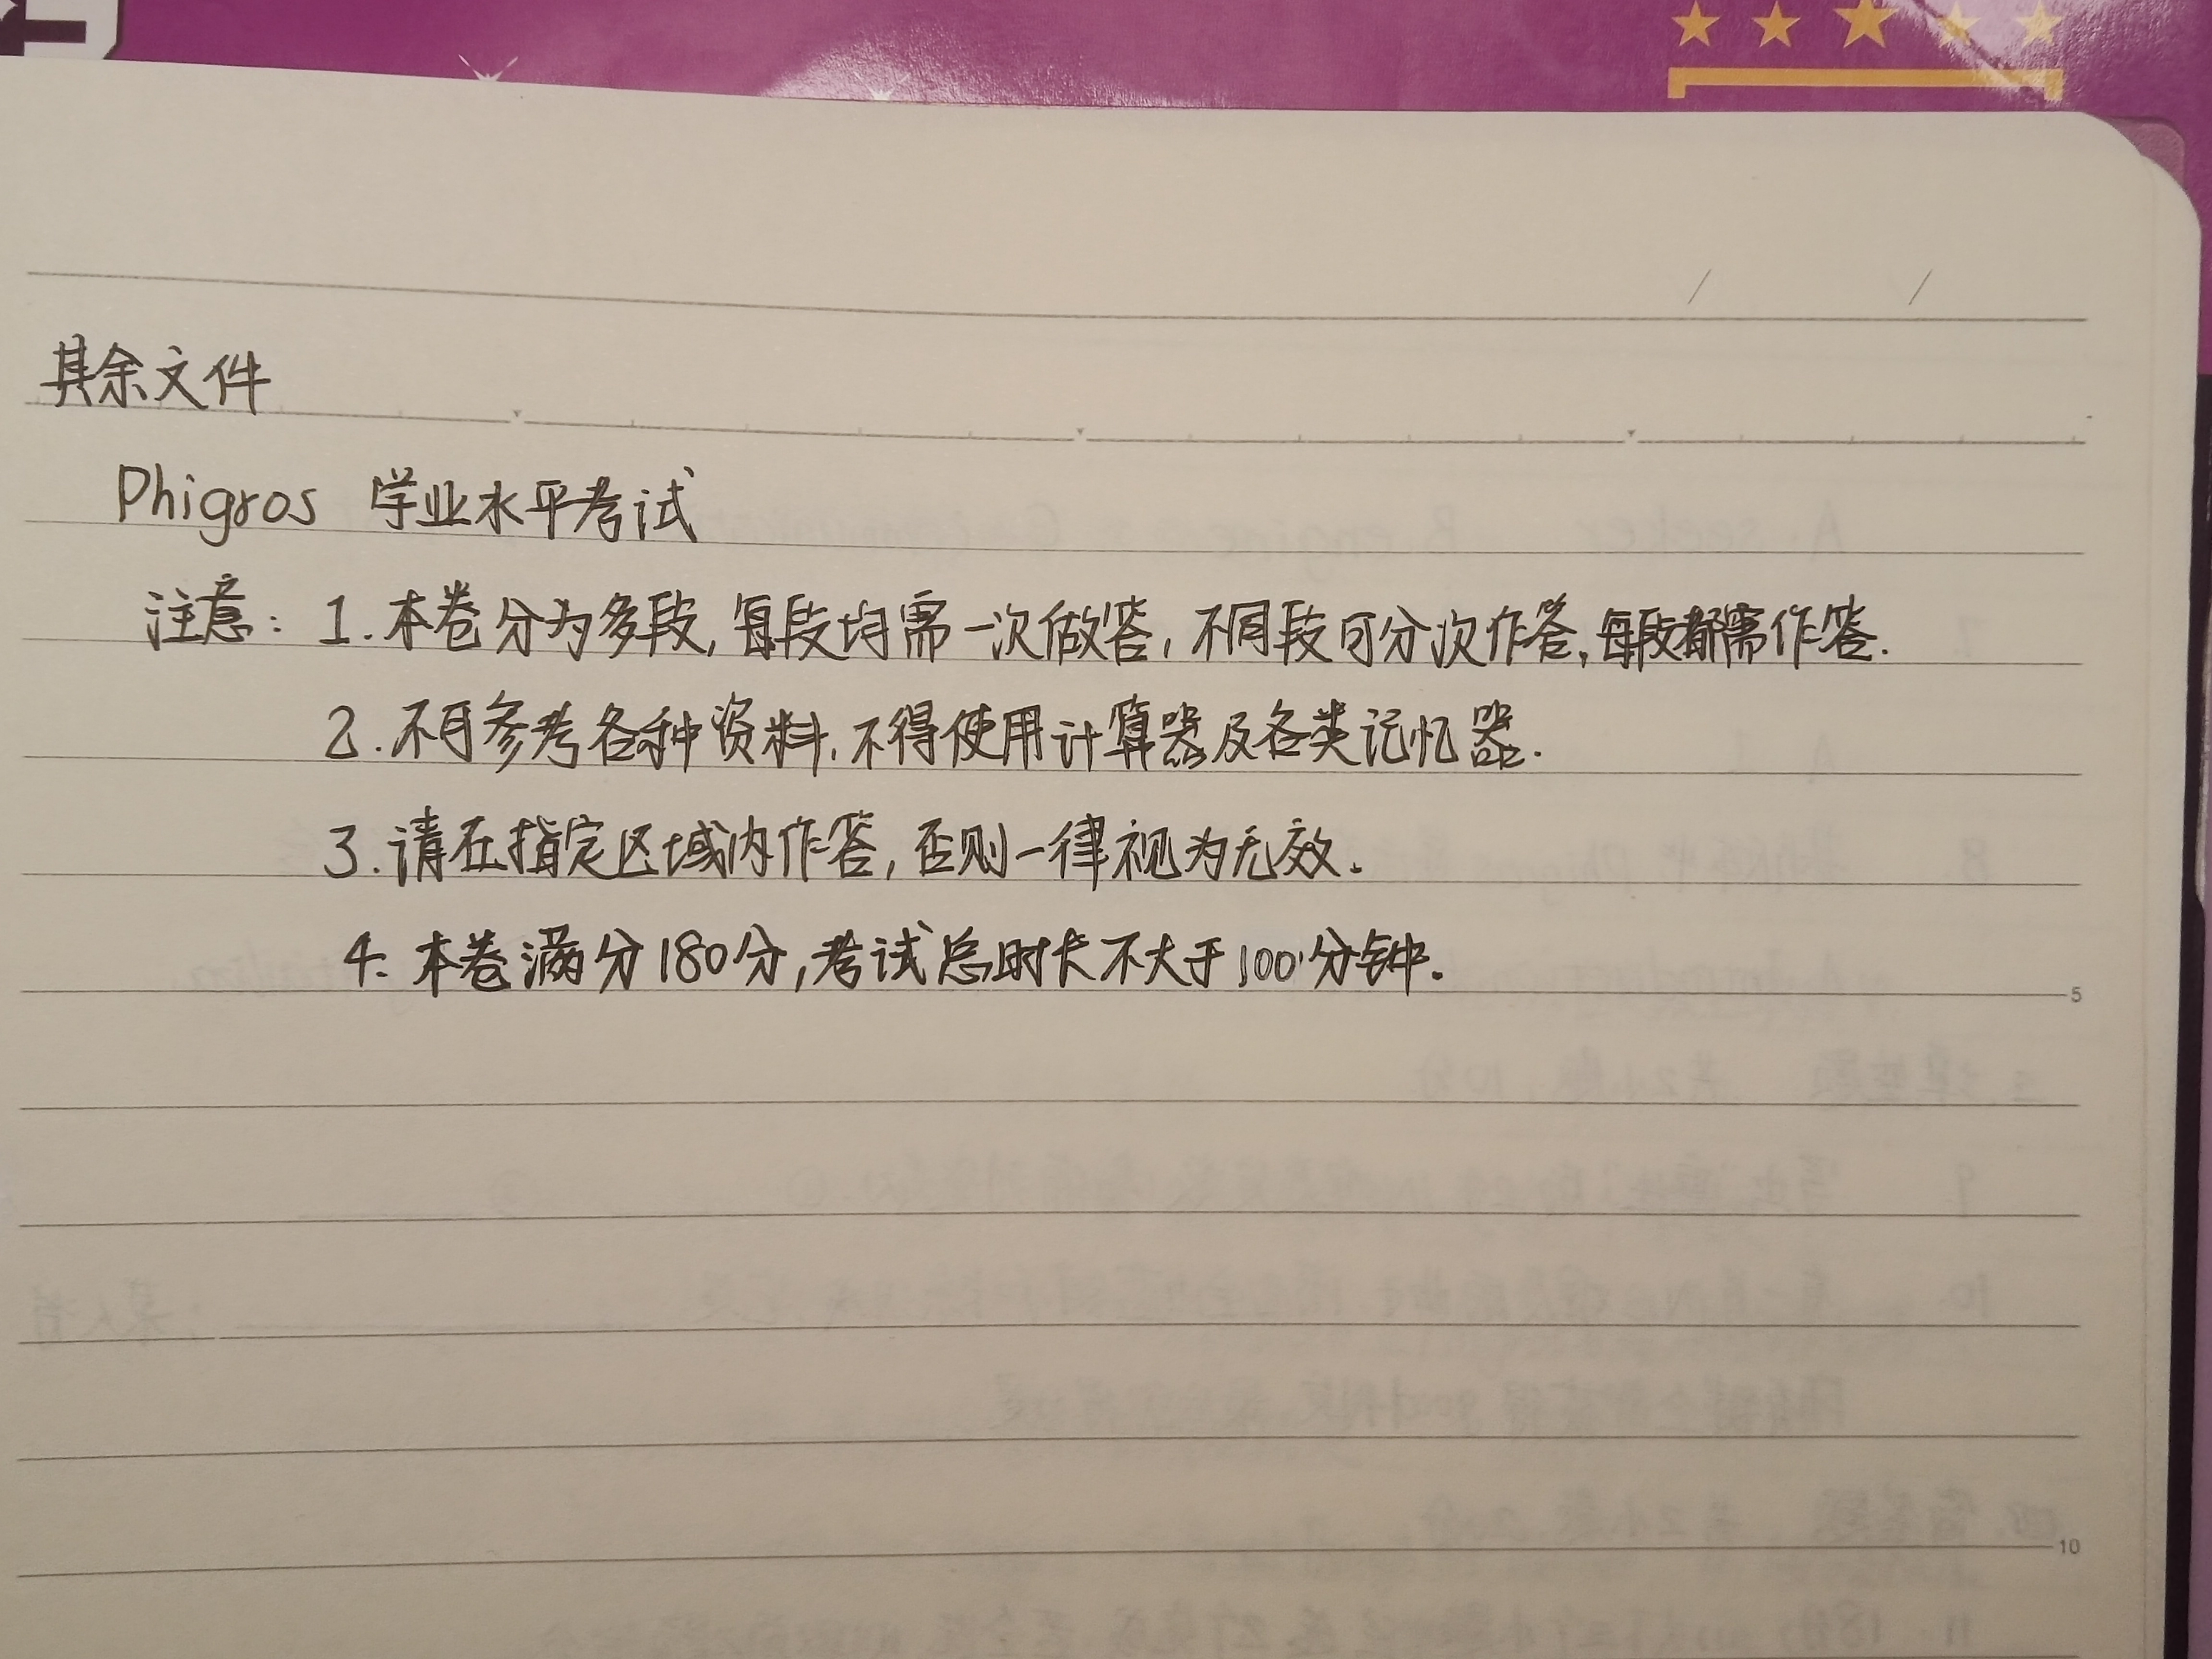 其余文件
Phigros 学业水平考试
注意：1.本卷分为多段，每段均需一次做答，不同段可分次作答，每段都需作答.
2.不可参考各种资料，不得使用计算器及各类记忆器.
3.请在指定区域内作答，否则一律视为无效.
4.本卷满分180分，考试总时长不大于100分钟.
5
10